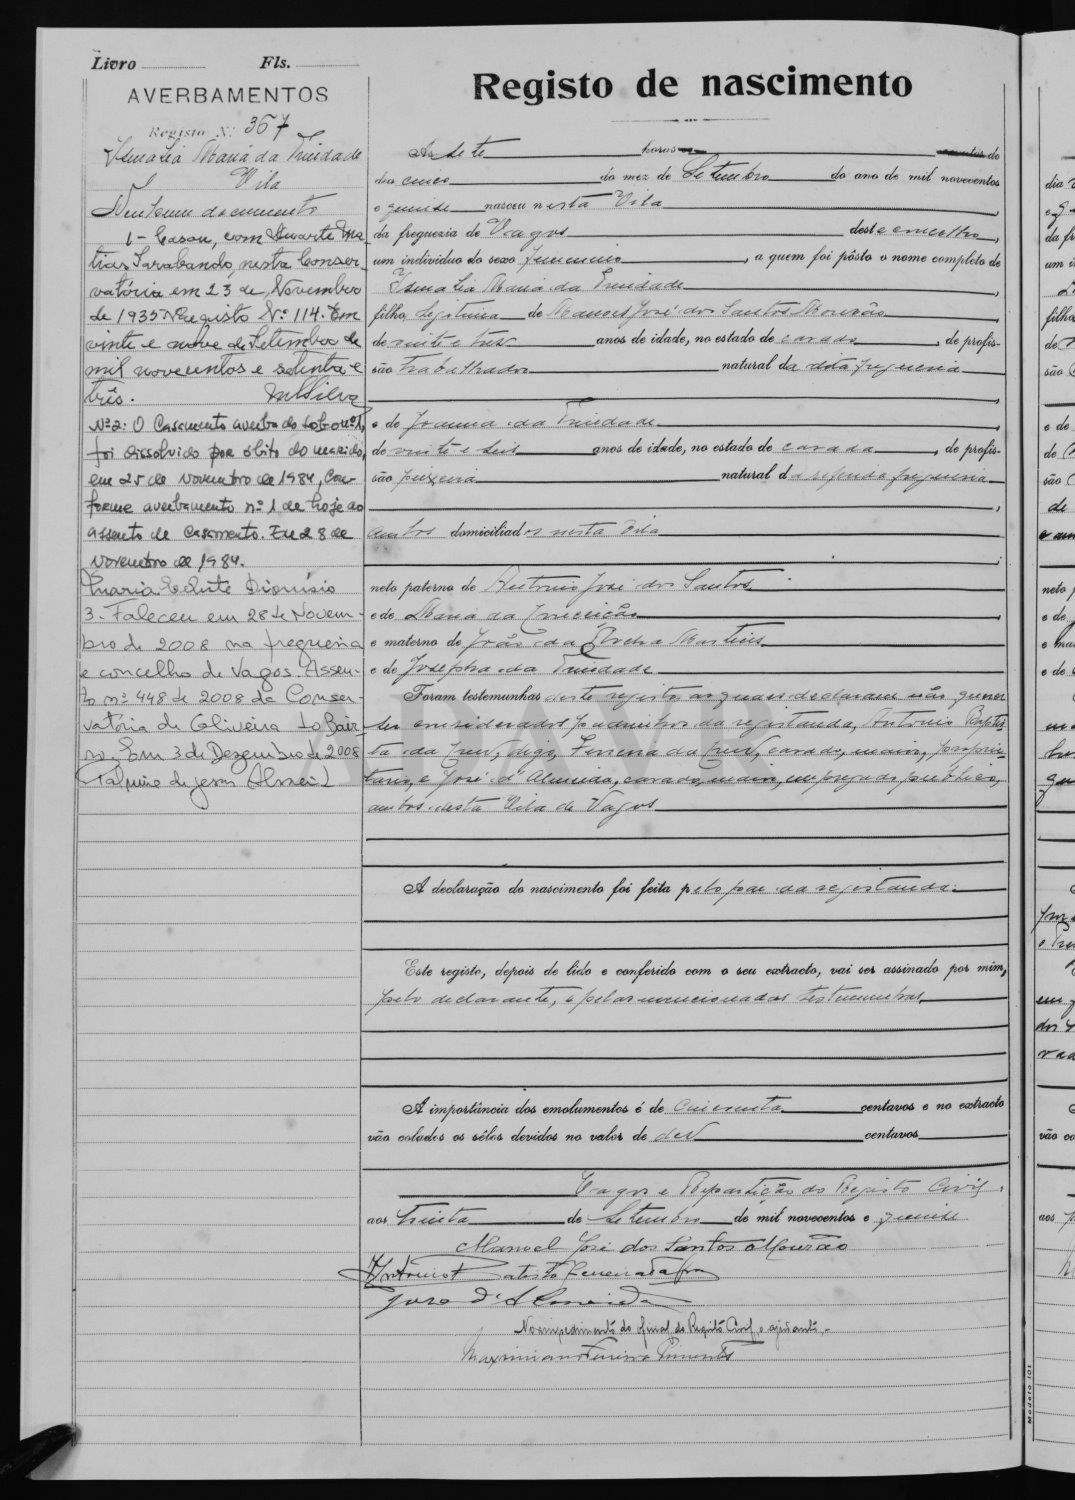 Livro Fls.
AVERBAMENTOS
Registo N.º 367
Ismalia Maria da Trindade
Vila
Nenhum documento
1 - Casou, com Duarte Ma-
tias Sarabando, nesta Conser-
vatória em 23 de Novembro
de 1935 Registo Nº 114. Em
vinte e nove de Setembro de
mil novecentos e setenta e
três. MSilva
Nº 2: O Casamento averbado sob o nº 1,
foi dissolvido por óbito do marido,
em 25 de Novembro de 1984, Con-
forme averbamento nº 1 de hoje ao
assento de Casamento. Em 28 de
Novembro de 1984.
Maria Celeste Dionísio
3 - Faleceu em 28 de Novem-
bro de 2008 na freguesia
e concelho de Vagos. Assen-
to nº 448 de 2008 da Conser-
vatória de Oliveira do Bair-
ro. Em 3 de Dezembro de 2008
de Jesus
Registo de nascimento
Às sete horas do
dia cinco do mez de Setembro do ano de mil novecentos
e quinze nasceu nesta Vila
da freguezia de Vagos deste concelho,
um individuo do sexo femenino, a quem foi pôsto o nome completo de
Ismalia Maria da Trindade
filha legitima de Manoel José dos Santos Mourão
de vinte e três anos de idade, no estado de casado, de profis-
são trabalhador natural da dita freguesia
e de Joanna da Trindade
de vinte e seis anos de idade, no estado de casada, de profis-
são peixeira natural da referida freguesia
ambos domiciliados nesta Vila
neto paterno de Antonio José dos Santos
e de Maria da Conceição
e materno de João da Rocha Martins
e de Josepha da Trindade
Foram testemunhas deste registo as quaes declararam não querer
ser considerados padrinhos da registanda, Antonio Baptis-
ta da Cruz, digo, Ferreira da Cruz, casado, maior, proprie-
tario, e José d'Almeida, casado, maior, empregado publico,
ambos desta Vila de Vagos
ADAVR
A declaração do nascimento foi feita pelo pae da registanda.
Este registo, depois de lido e conferido com o seu extracto, vai ser assinado por mim,
pelo declarante, e pelas mencionadas testemunhas
A importância dos emolumentos é de cincoenta centavos e no extracto
vão colados os sêlos devidos no valor de dez centavos
Vagos e Repartição do Registo Civil,
aos trinta de Setembro de mil novecentos e quinze
Manoel José dos Santos Mourão
Antonio Batista Ferreira da Cruz
José d'Almeida
No impedimento do oficial do Registo Civil, o ajudante,
Maximiano Ferreira Pimentel
Modelo 101